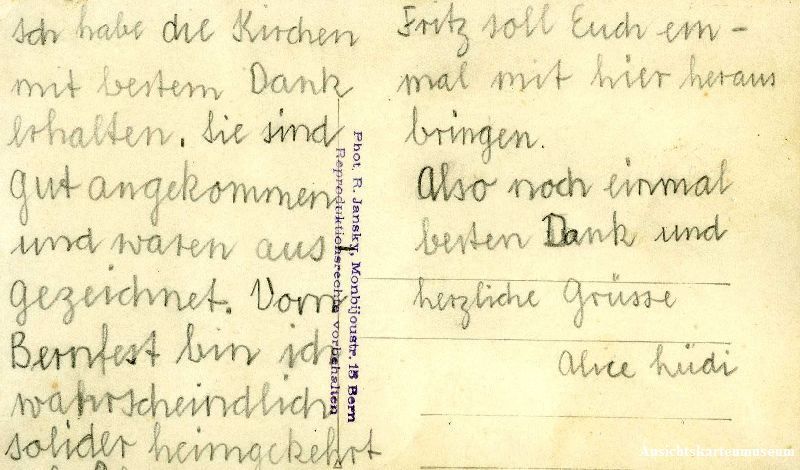 Ich habe die Kirchen
mit bestem Dank
erhalten. Sie sind
gut angekommen
und waren aus
gezeichnet. Vom
Bernfest bin ich
wahrscheindlich
solider heimgekehrt
Fritz soll Euch ein-
mal mit hier heraus
bringen.
Also noch einmal
besten Dank und
herzliche Grüsse
Alice Lüdi
Phot. R. Jansky, Monbijoustr. 15 Bern
Reproduktionsrechte vorbehalten
Ansichtskartenmuseum